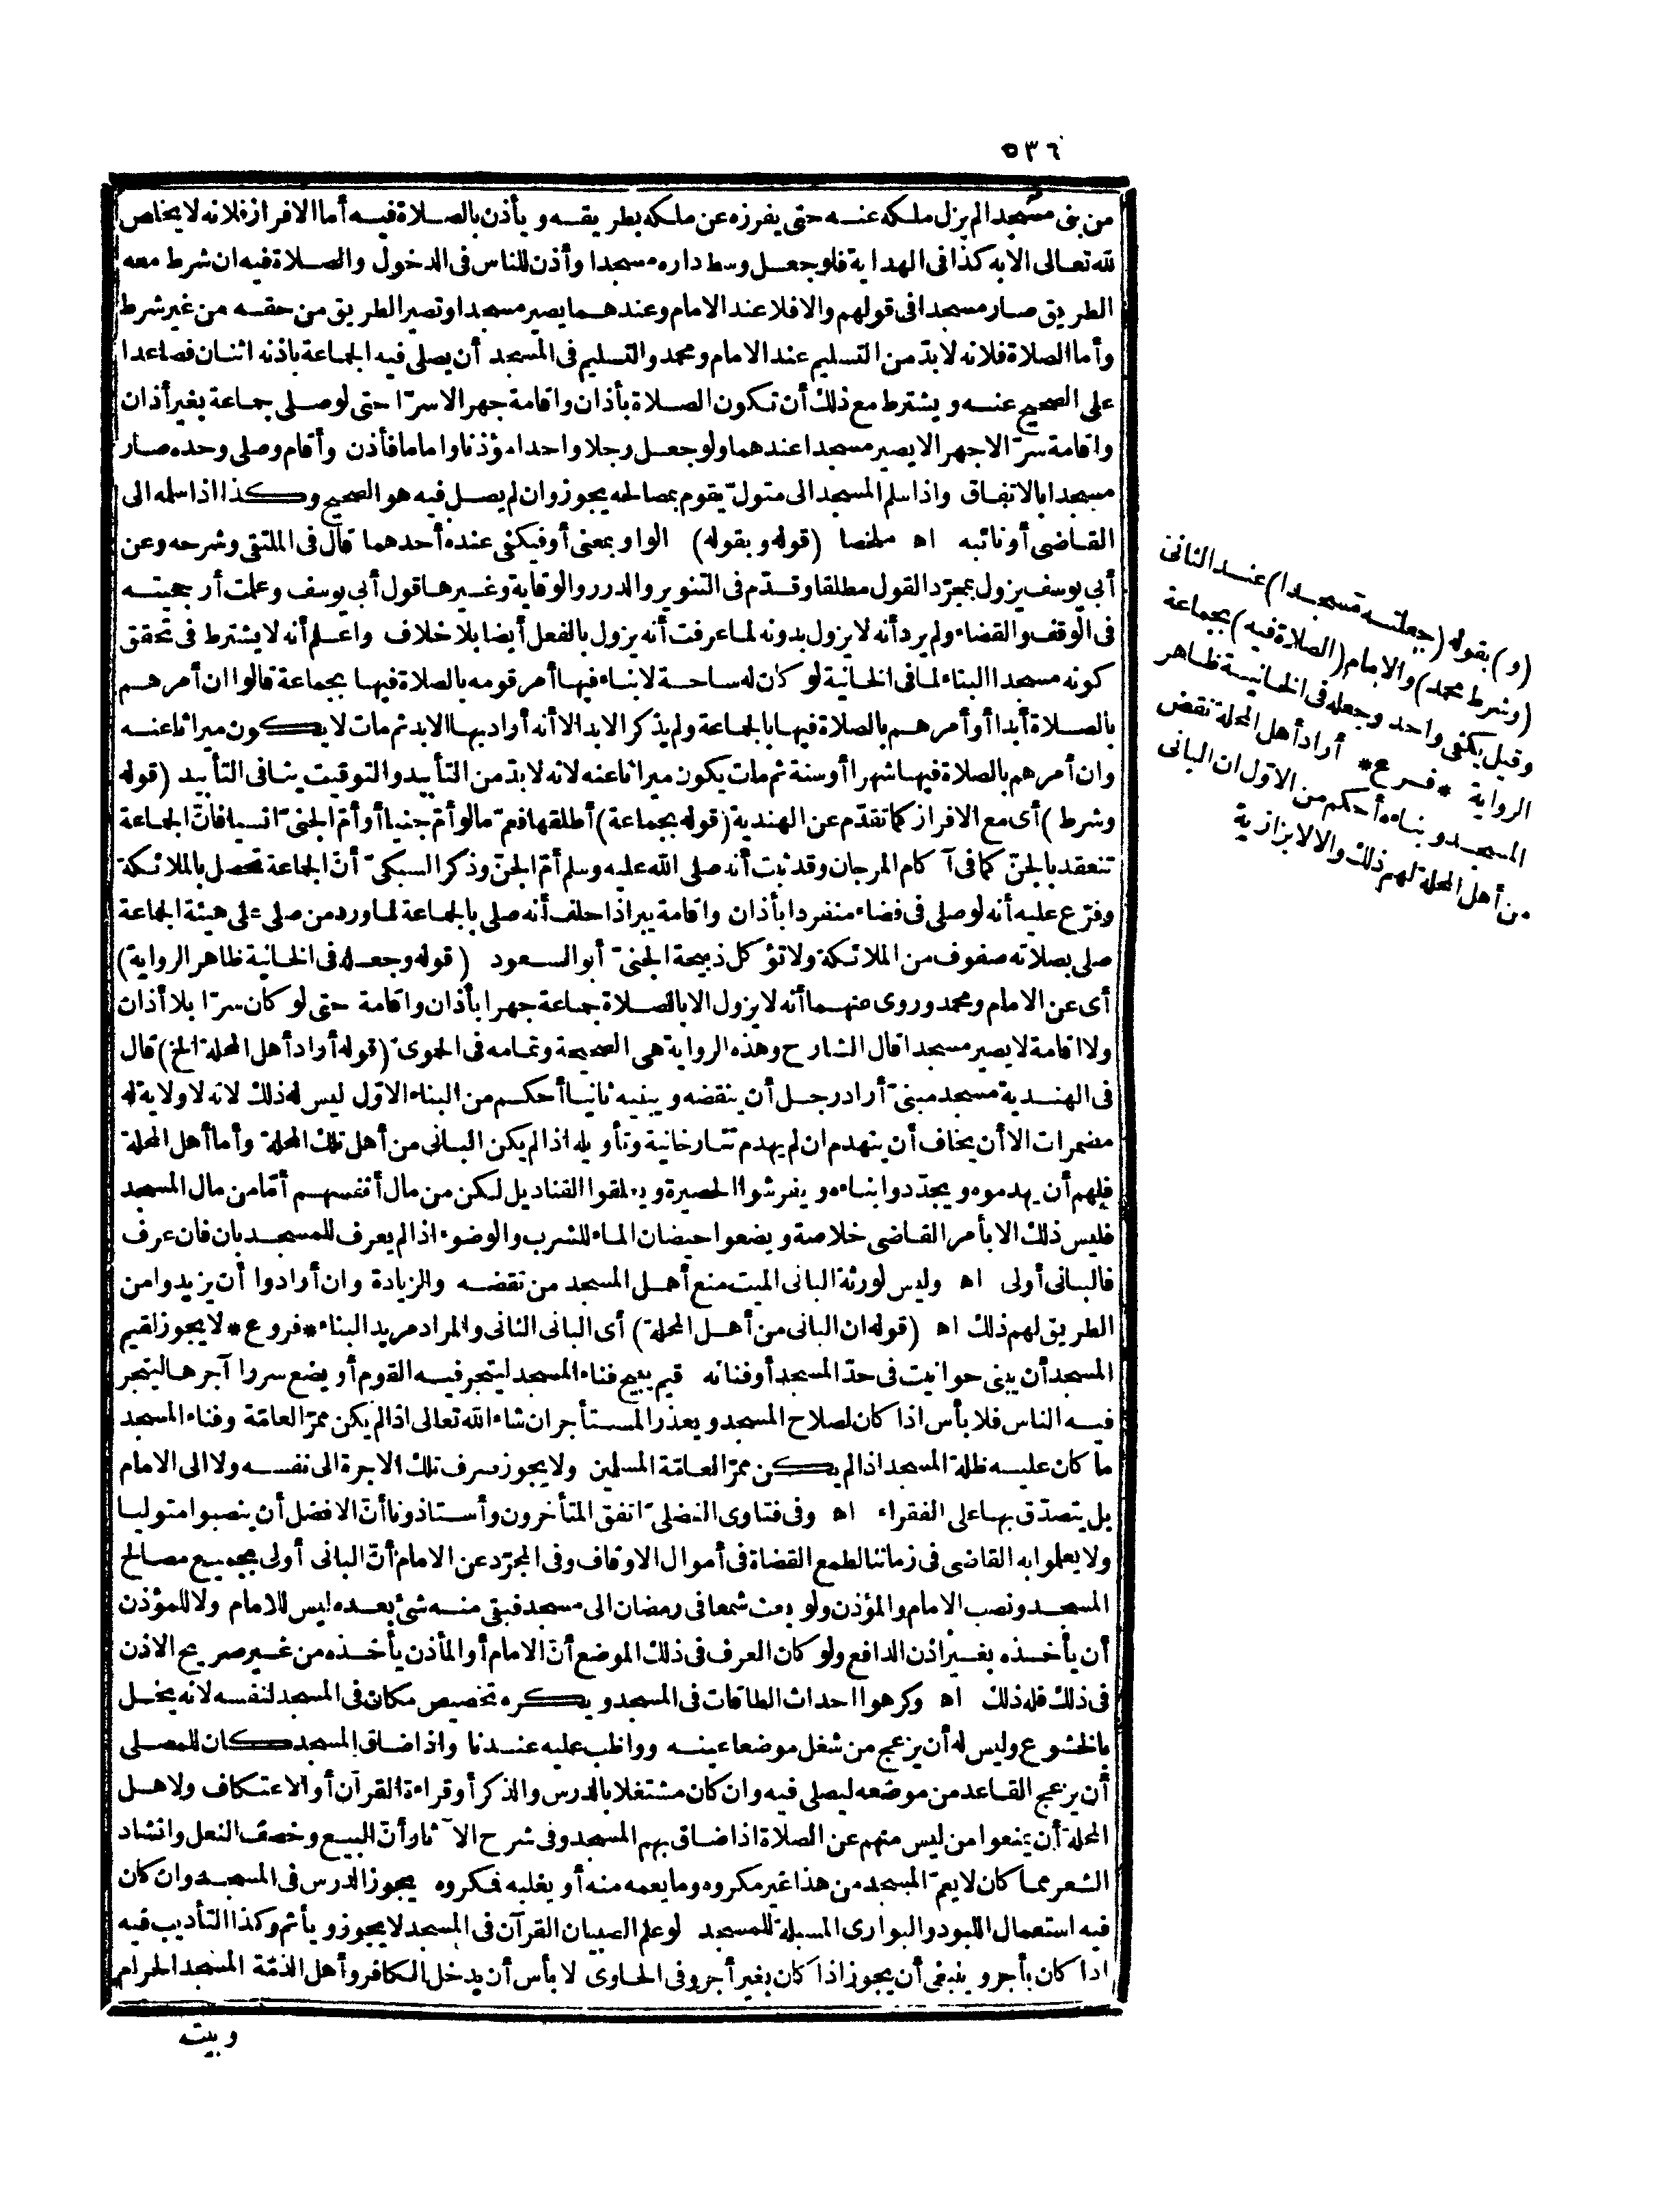 ٥٣٦
من بنى مسجدا لم يزل ملكه عنه حتى يفرزه عن ملكه بطريقه ويأذن بالصلاة فيه أما الافراز فلانه لا يخلص
لله تعالى الا به كذا فى الهداية فلو جعل وسط داره مسجدا وأذن للناس فى الدخول والصلاة فيه ان شرط معه
الطريق صار مسجدا فى قولهم والا فلا عند الامام وعندهما يصير مسجدا وتصير الطريق من حقه من غير شرط
وأما الصلاة فلانه لا بدّ من التسليم عند الامام ومحمد والتسليم فى المسجد أن يصلى فيه الجماعة باذنه اثنان فصاعدا
على الصحيح عنه ويشترط مع ذلك أن تكون الصلاة بأذان واقامة جهرا لا سرّا حتى لو صلى جماعة بغير أذان
واقامة سرّا لا جهرا لا يصير مسجدا عندهما ولو جعل رجلا واحدا مؤذنا واماما فأذن وأقام وصلى وحده صار
مسجدا بالاتفاق واذا سلم المسجد الى متولّ يقوم بمصالحه يجوز وان لم يصل فيه هو الصحيح وكذا اذا سلمه الى
القاضى أو نائبه اه ملخصا (قوله وبقوله) الواو بمعنى أو فيكفى عنده أحدهما قال فى الملتقى وشرحه وعن
أبى يوسف يزول بمجرّد القول مطلقا وقدّم فى التنوير والدرر والوقاية وغيرها قول أبى يوسف وعلمت أرجحيته
فى الوقف والقضاء ولم يرد أنه لا يزول بدونه لما عرفت أنه يزول بالفعل أيضا بلا خلاف واعلم أنه لا يشترط فى تحقق
كونه مسجدا البناء لما فى الخانية لو كان له ساحة لا بناء فيها أمر قومه بالصلاة فيها بجماعة قالوا ان أمرهم
بالصلاة أبدا أو أمرهم بالصلاة فيها بالجماعة ولم يذكر الابد الا أنه أراد بها الابد ثم مات لا يكون ميراثا عنه
وان أمرهم بالصلاة فيها شهرا أو سنة ثم مات يكون ميراثا عنه لانه لا بدّ من التأبيد والتوقيت ينافى التأبيد (قوله
وشرط) أى مع الافراز كما تقدّم عن الهندية (قوله بجماعة) أطلقها فعمّ ما لو أمّ جنيا أو أمّ الجنىّ انسيا فانّ الجماعة
تنعقد بالجنّ كما فى آكام المرجان وقد ثبت أنه صلى الله عليه وسلم أمّ الجنّ وذكر السبكىّ أنّ الجماعة تحصل بالملائكة
وفرّع عليه أنه لو صلى فى فضاء منفردا بأذان واقامة يبرّ اذا حلف أنه صلى بالجماعة لما ورد من صلى على هيئة الجماعة
صلى بصلاته صفوف من الملائكة ولا تؤكل ذبيحة الجنىّ أبو السعود (قوله وجعله فى الخانية ظاهر الرواية)
أى عن الامام ومحمد وروى عنهما أنه لا يزول الا بالصلاة جماعة جهرا بأذان واقامة حتى لو كان سرّا بلا أذان
ولا اقامة لا يصير مسجدا قال الشارح وهذه الرواية هى الصحيحة وتمامه فى الحموىّ (قوله أراد أهل المحلة الخ) قال
فى الهندية مسجد مبنىّ أراد رجل أن ينقضه ويبنيه ثانيا أحكم من البناء الاوّل ليس له ذلك لانه لا ولاية له
مضمرات الا أن يخاف أن ينهدم ان لم يهدم تتارخانية وتأويله اذا لم يكن البانى من أهل تلك المحلة وأما أهل المحلة
فلهم أن يهدموه ويجدّدوا بناءه ويفرشوا الحصيرة ويعلقوا القناديل لكن من مال أنفسهم أمّا من مال المسجد
فليس ذلك الا بأمر القاضى خلاصة ويضعوا حيضان الماء للشرب والوضوء اذا لم يعرف للمسجد بان فان عرف
فالبانى أولى اه وليس لورثة البانى الميت منع أهل المسجد من نقضه والزيادة وان أرادوا أن يزيدوا من
الطريق لهم ذلك اه (قوله ان البانى من أهل المحلة) أى البانى الثانى والمراد مريد البناء *فروع* لا يجوز لقيم
المسجد أن يبنى حوانيت فى حدّ المسجد أو فنائه قيم يبيح فناء المسجد ليتجر فيه القوم أو يضع سررا آجرها ليتجر
فيه الناس فلا بأس اذا كان لصلاح المسجد ويعذر المستأجر ان شاء الله تعالى اذا لم يكن ممرّ العامّة وفناء المسجد
ما كان عليه ظلة المسجد اذا لم يكن ممرّا لعامّة المسلمين ولا يجوز صرف تلك الاجرة الى نفسه ولا الى الامام
بل يتصدّق بها على الفقراء اه وفى فتاوى الفضلىّ اتفق المتأخرون وأستاذونا أنّ الافضل أن ينصبوا متوليا
ولا يعلموا به القاضى فى زماننا لطمع القضاة فى أموال الاوقاف وفى المجرّد عن الامام أنّ البانى أولى بجميع مصالح
المسجد ونصب الامام والمؤذن ولو بعث شمعا فى رمضان الى مسجد فبقى منه شئ بعده ليس للامام ولا للمؤذن
أن يأخذه بغير اذن الدافع ولو كان العرف فى ذلك الموضع أنّ الامام أو المأذن يأخذه من غير صريح الاذن
فى ذلك فله ذلك اه وكرهوا احداث الطاقات فى المسجد ويكره تخصيص مكان فى المسجد لنفسه لانه يخل
بالخشوع وليس له أن يزعج من شغل موضعا عينه وواظب عليه عندنا واذا ضاق المسجد كان للمصلى
أن يزعج القاعد من موضعه ليصلى فيه وان كان مشتغلا بالدرس والذكر أو قراءة القرآن أو الاعتكاف ولاهل
المحلة أن يمنعوا من ليس منهم عن الصلاة اذا ضاق بهم المسجد وفى شرح الآثار أنّ البيع وخصف النعل وانشاد
الشعر مما كان لا يعمّ المسجد من هذا غير مكروه وما يعمه منه أو يغلبه فمكروه يجوز الدرس فى المسجد وان كان
فيه استعمال اللبود والبوارى المسبلة للمسجد لو علم الصبيان القرآن فى المسجد لا يجوز ويأثم وكذا التأديب فيه
اذا كان بأجر وينبغى أن يجوز اذا كان بغير أجر وفى الحاوى لا بأس أن يدخل الكافر وأهل الذمّة المسجد الحرام
وبيته
(و) بقوله (جعلته مسجدا) عند الثانى
(وشرط محمد) والامام (الصلاة فيه) بجماعة
وقيل يكفى واحد وجعله فى الخانية ظاهر
الرواية *فرع* أراد أهل المحلة نقض
المسجد وبناءه أحكم من الاوّل ان البانى
من أهل المحلة لهم ذلك والا لا بزازية